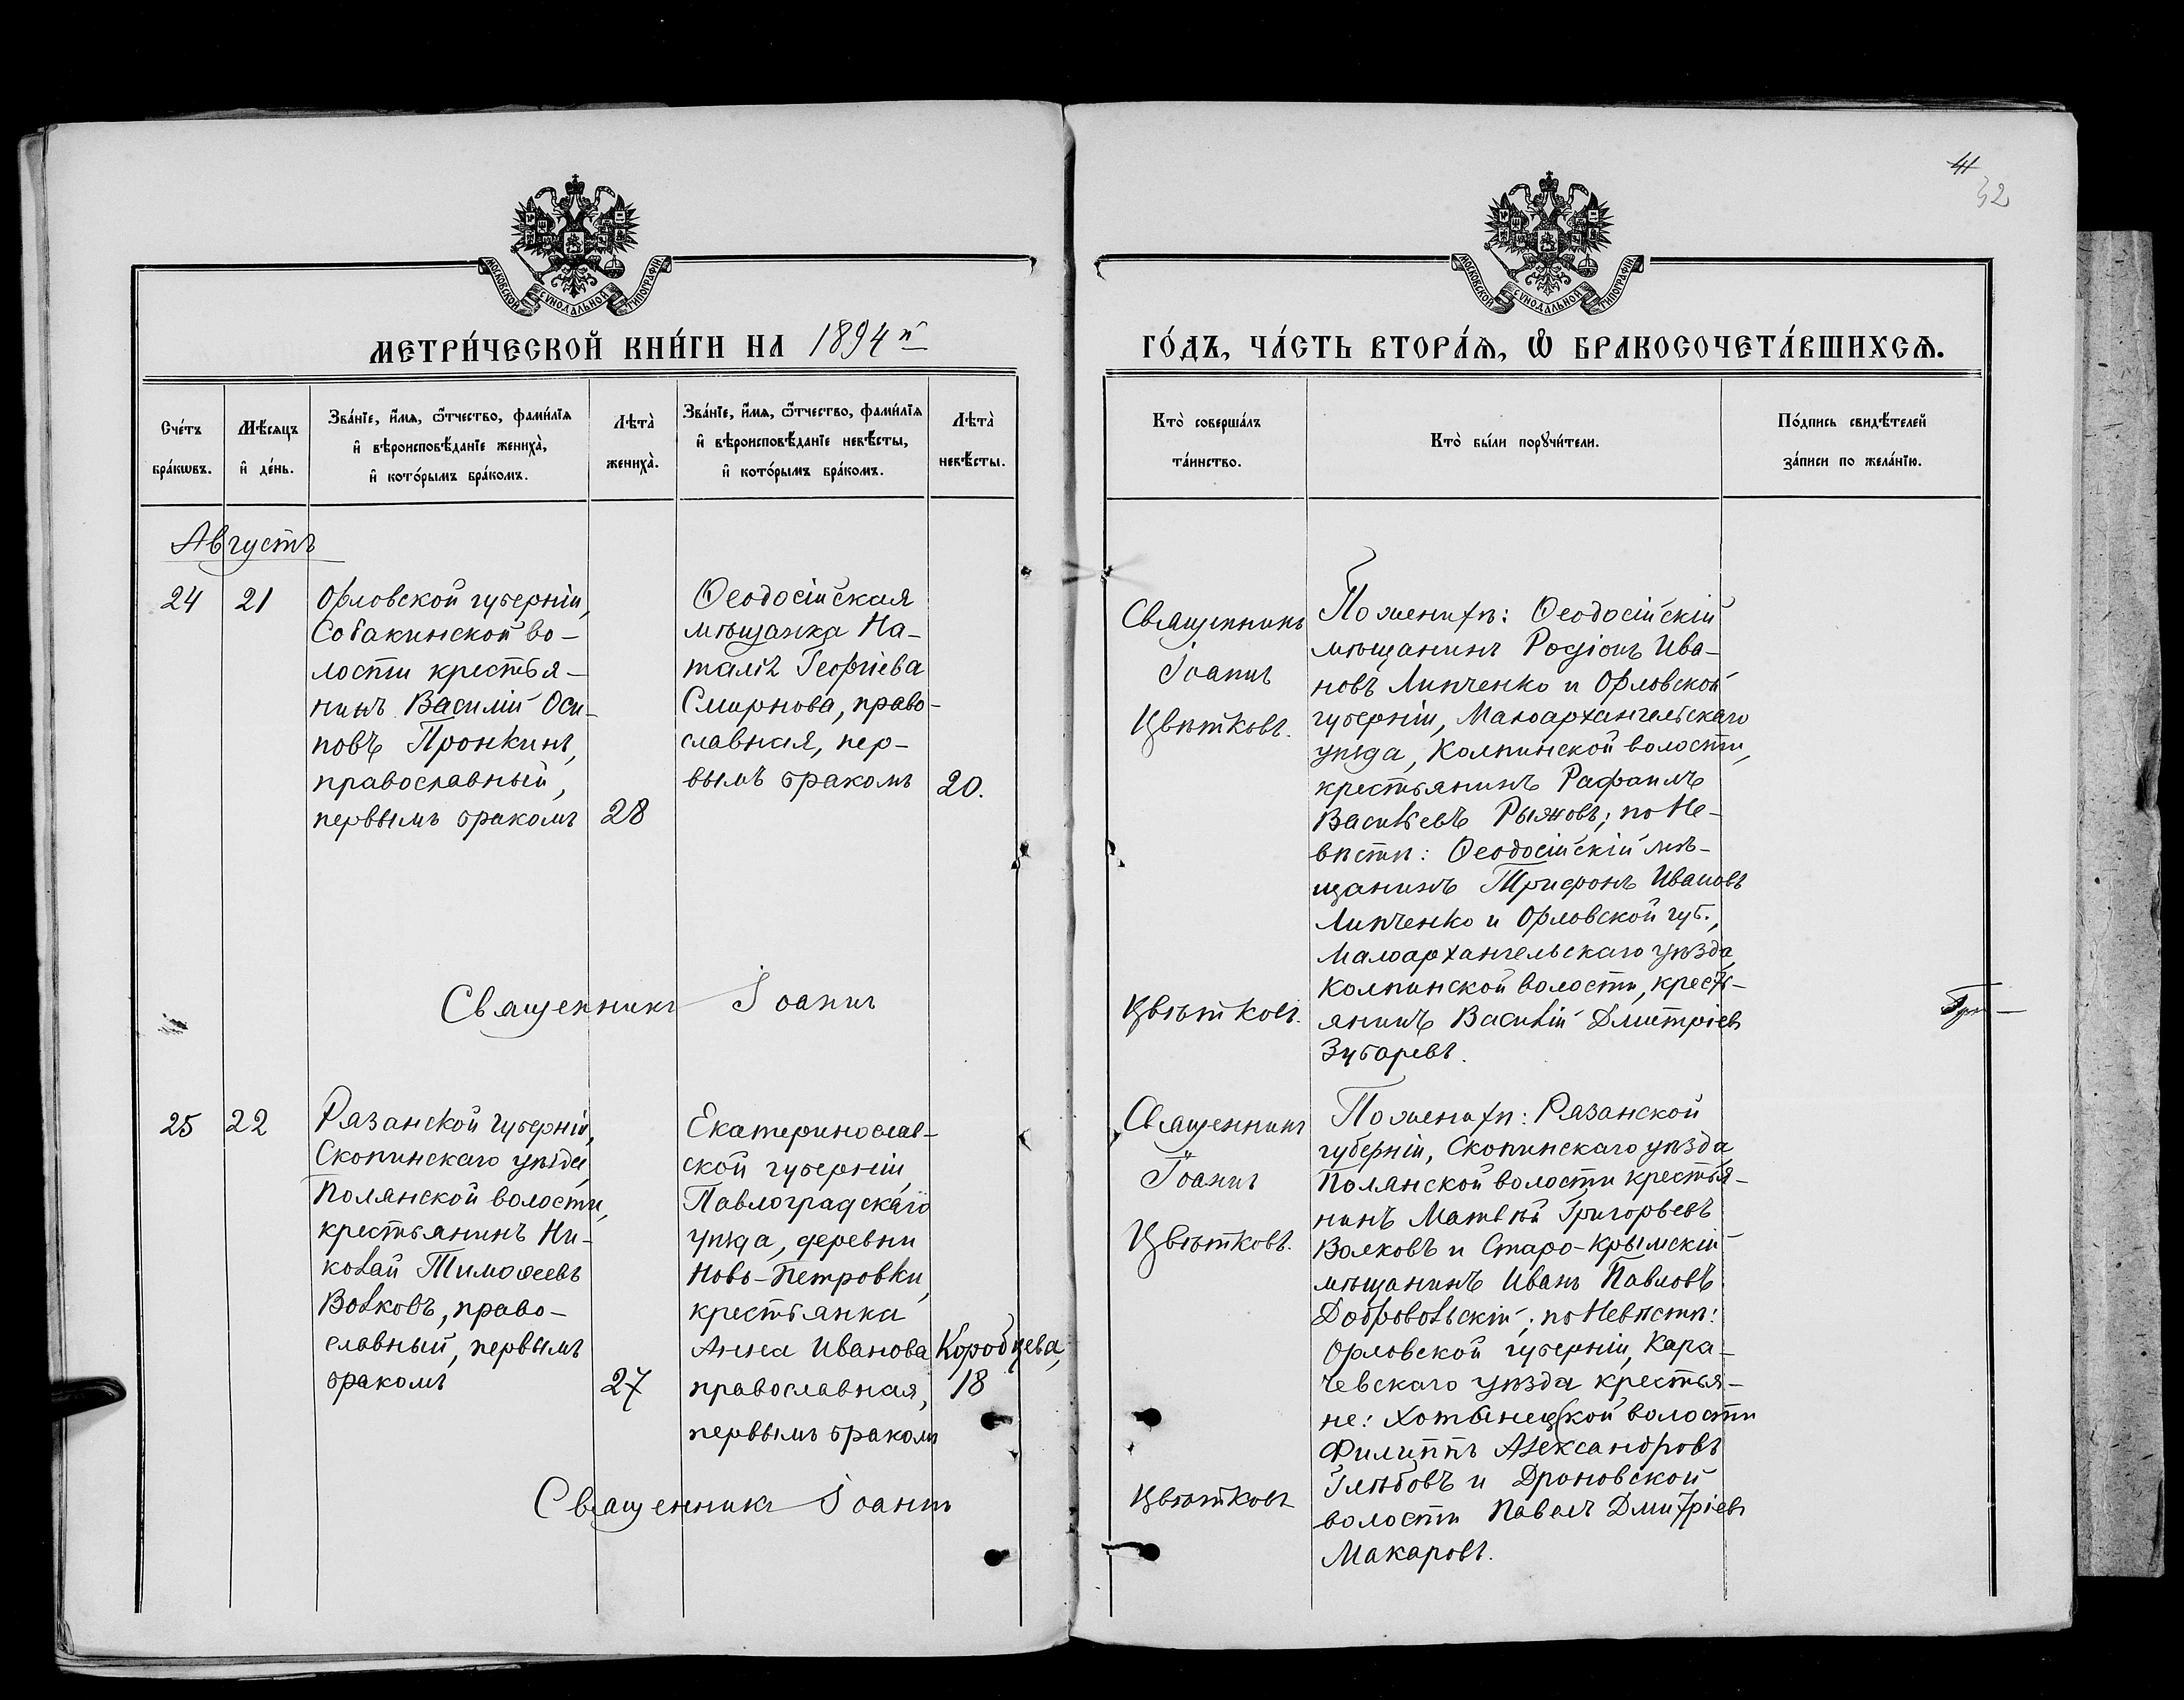 41
32
МОСКОВСКОЙ СѴНОДАЛЬНОЙ ТИПОГРАФІИ
МОСКОВСКОЙ СѴНОДАЛЬНОЙ ТИПОГРАФІИ
МЕТРИ́ЧЕСКОЙ КНИ́ГИ НА 1894й
ГО́ДЪ, ЧА́СТЬ ВТОРА́Ѧ, Ѽ БРАКОСОЧЕТА́ВШИХСѦ.
Сче́тъ
бра́кѡвъ.
Мѣ́сяцъ
и҆ де́нь.
Зва́нїе, и҆́мѧ, ѻ҆́тчество, фами́лїѧ
и҆ вѣроисповѣ́данїе жениха̀,
и҆ кото́рымъ бра́комъ.
Лѣта̀
жениха̀.
Зва́нїе, и҆́мѧ, ѻ҆́тчество, фами́лїѧ
и҆ вѣроисповѣ́данїе невѣ́сты,
и҆ кото́рымъ бра́комъ.
Лѣта̀
невѣ́сты.
Кто̀ соверша́лъ
та́инство.
Кто̀ бы́ли порꙋчи́тели.
По́дпись свидѣ́телей
за́писи по жела́нїю.
Августъ
24
21
Орловской губерніи,
Собакинской во-
лости крестья-
нинъ Василій Оси-
повъ Пронкинъ,
православный,
первымъ бракомъ
28
Ѳеодосійская
мѣщанка На-
талія Георгіева
Смирнова, право-
славная, пер-
вымъ бракомъ
20.
Священникъ
Іоаннъ
Цвѣтковъ.
По женихѣ: Ѳеодосійскій
мѣщанинъ Родіонъ Ива-
новъ Липченко и Орловской
губерніи, Малоархангельскаго
уѣзда, Колпинской волости,
крестьянинъ Рафаилъ
Васильевъ Рыжовъ; по Не-
вѣстѣ: Ѳеодосійскій мѣ-
щанинъ Трифонъ Ивановъ
Липченко и Орловской губ.,
Малоархангельскаго уѣзда,
Колпинской волости, кресть-
янинъ Василій Дмитріевъ
Зубаревъ.
Священникъ Іоаннъ
Цвѣтковъ.
25
22
Рязанской губерніи,
Скопинскаго уѣзда,
Полянской волости,
крестьянинъ Ни-
колай Тимоѳеевъ
Волковъ, право-
славный, первымъ
бракомъ
27
Екатеринослав-
ской губерніи,
Павлоградскаго
уѣзда, деревни
Ново-Петровки,
крестьянка
Анна Иванова Коробцева,
православная,
первымъ бракомъ
18
Священникъ
Іоаннъ
Цвѣтковъ.
По женихѣ: Рязанской
губерніи, Скопинскаго уѣзда
Полянской волости крестья-
нинъ Матвѣй Григорьевъ
Волковъ и Старо-Крымскій
мѣщанинъ Иванъ Павловъ
Добровольскій; по Невѣстѣ:
Орловской губерніи, Кара-
чевскаго уѣзда крестья-
не: Хотынецкой волости
Филиппъ Александровъ
Глѣбовъ и Дроновской
волости Павелъ Дмитріевъ
Макаровъ.
Священникъ Іоаннъ
Цвѣтковъ